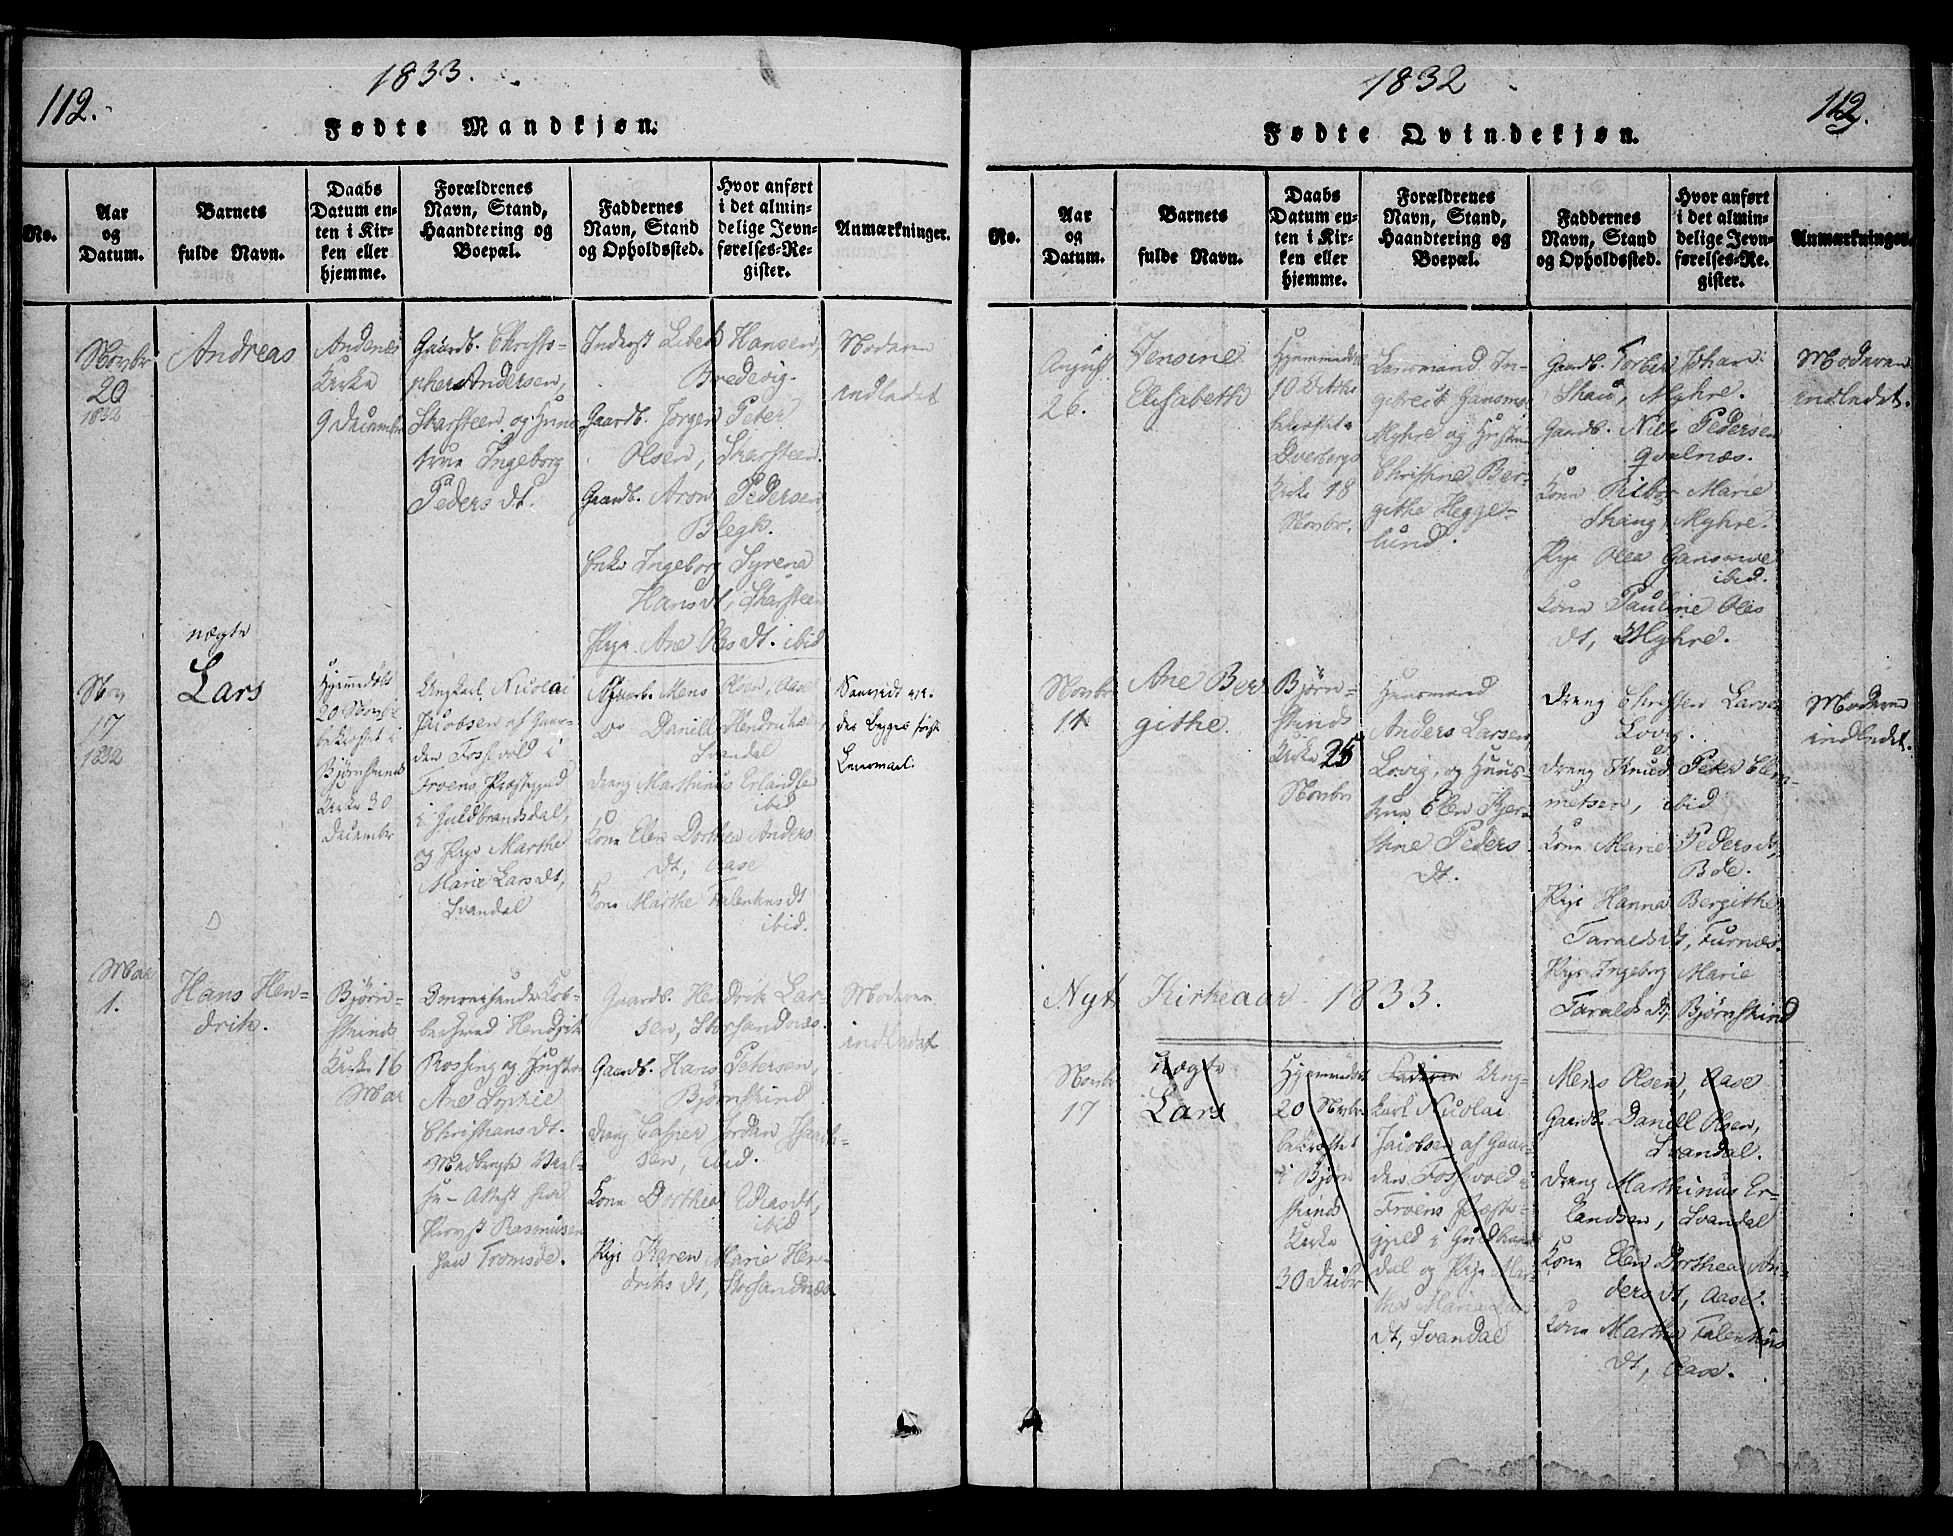 112.
1833.
Fødte Mandkjøn.
No.
Aar
og
Datum.
Barnets
fulde Navn.
Daabs
Datum en-
ten i Kir-
ken eller
hjemme.
Forældrenes
Navn, Stand,
Haandtering og
Boepæl.
Faddernes
Navn, Stand
og Opholdssted.
Hvor anført
i det almin-
delige Jevn-
førelses-Re-
gister.
Anmærkninger.
Novbr
20
1832
Andreas
Andenæs
Kirke
9 December
Gaardb. Christo-
pher Andersen,
Skarsteen og Huus
true Ingeborg
Peders dt.
Inderst Hansen,
Bredevig.
Gaardb. Jørgen Peter
Olsen, Skarsteen.
Gaardb. Aron Pedersen,
Blegh.
Enke Ingeborg Syrena
Hansdt, Skarsteen
Pige Ane Olsdt. ibid
Moderen
indledet
Nov
17
1832
uægte
Lars
Hjemmedøbt
20 Novbr
bekræftet i
Bjørnskinds
Kirke 30
December
Ungkarl Nicolai
Jacobsen af Gaar-
den Fosswold i
Froens Præstegjeld
i Guldbrandsdal,
og Pige Marthe
Marie Larsdt,
Svandal
Mens Olsen, Aase
Daniell Hendriksen,
Svandal
Dreng Marthinus Erlandsen
ibid
Kone Elen Dorthea Anders
dt, Aase
Kone Marthe Falentinsdt
ibid.
des begges første
Leiermaal.
Mar
1.
Hans Hen-
drik.
Bjørn-
skinds
Kirke 16
Mar
Omreisende Kob-
berhand Hendrik
Rossing og Hustru
Ane Sophie
Christiansdt.
Medbragte
Attest fra
Provst Rasmusen
paa Tromsøe.
Gaardb. Hendrik Lar-
sen, Storsandnæs.
Gaardb. Hans Petersen,
Bjørnskind
Dreng Casper Jordan Isach-
sen, ibid.
Kone Dorthea Eliasdt,
ibid
Pige Karen Marie Hen-
driks dt, Storsandnæs.
Moderen
indledet
1832
112.
Fødte Qvindekjøn.
No.
Aar
og
Datum.
Barnets
fulde Navn.
Daabs
Datum en-
ten i Kir-
ken eller
hjemme.
Forældrenes
Navn, Stand,
Haandtering og
Boepæl.
Faddernes
Navn, Stand
og Opholdssted.
Hvor anført
i det almin-
delige Jevn-
førelses-Re-
gister.
Anmærkninger.
August
26.
Jensine
Elisabeth
Hjemmedøbt
10 Octbr
bekræftet i
Dverbergs
Kirke 18
Novbr.
Leensmand In-
gebret Hansmo
Myhre og Hustru
Christine Ber-
githe Hegge-
lund.
Gaardb. Torber Johan
Myhre.
Gaardb. Niels Pedersen
Qvalnæs.
Kone Marie
Myhre.
Pige
ibid.
Kone Pauline Ols
dt, Myhre.
Moderen
indledet.
Novbr
14
Ane Ber
githe.
Bjørn-
skinds
Kirke 25
Novbr
Huusmand
Anders Larsen,
Lovig, og Huus-
true Elen Kjer-
stine Peders
dt.
Dreng Christen Larsen
Lovig.
Dreng Knud Peter Clem-
metsen, ibid
Kone Marie Pedersdt,
Bøe.
Pige Hanna Bergithe
Taraldsdt, Furnæs.
Pige Ingeborg Marie
Taraldsdt, Bjørnskind
Moderen
indledet.
Nyt Kirkeaar 1833.
Novbr
17
uægte
Lars
Hjemmedøbt
20 Novbr
bekræftet
i Bjørn
skinds
Kirke
30 Decbr
Faderen Ung-
karl Nicolai
Jacobsen af Gaar-
den Fosswold i
Froens Præste-
gjeld i Guldbrands
dal og Pige Mar-
the Marie Lars
dt, Svandal
Mens Olsen, Aase
Gaardb. Daniell Olsen,
Svandal.
Dreng Marthinus Er-
landsen, Svandal
Kone Elen Dorthea An-
ders dt, Aase.
Kone Marthe Falentins
dt, Aase.